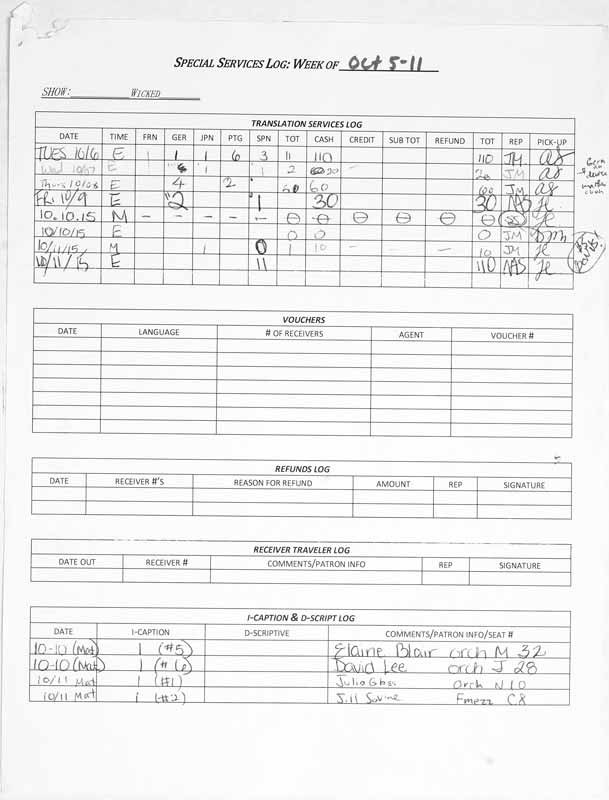 SPECIAL SERVICES LOG: WEEK OF Oct 5-11
SHOW: WICKED
TRANSLATION SERVICES LOG
DATE TIME FRN GER JPN PTG SPN TOT CASH CREDIT SUB TOT REFUND TOT REP PICK-UP
TUES 10/6 E 1 1 1 6 3 11 110 110 JM
Wed 10/07 E 1 1 2 20 20 JM
Thurs 10/08 E 4 2 60 60 JM
Fri 10/9 E 2 1 30 30 NAS
10.10.15 M - - - - - ⊖ ⊖ ⊖ ⊖ ⊖ ⊖
10/10/15 E 0 0 0 JM
10/11/15 M 1 0 1 10 - - 10 JM
10/11/15 E 11 110 NAS
VOUCHERS
DATE LANGUAGE # OF RECEIVERS AGENT VOUCHER #
REFUNDS LOG
DATE RECEIVER #'S REASON FOR REFUND AMOUNT REP SIGNATURE
RECEIVER TRAVELER LOG
DATE OUT RECEIVER # COMMENTS/PATRON INFO REP SIGNATURE
I-CAPTION & D-SCRIPT LOG
DATE I-CAPTION D-DESCRIPTIVE COMMENTS/PATRON INFO/SEAT #
10-10 (Mat) 1 (#5) Elaine Blair orch M 32
10-10 (Mat) 1 (#6) David Lee orch J 28
10/11 Mat 1 (#1) Julio Orch N 10
10/11 Mat 1 (#2) Jill Fmezz C8